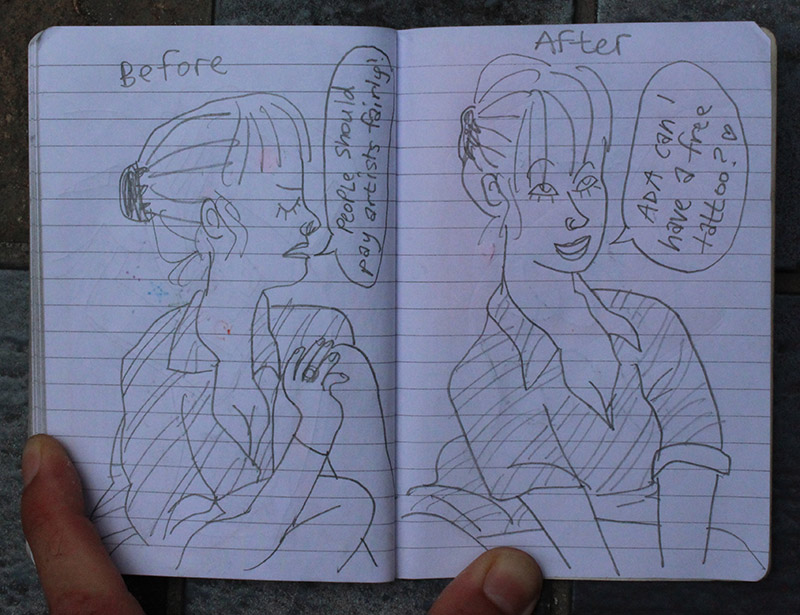 Before
People should
pay artists fairly!
After
ADA can I
have a free
tattoo? ♡